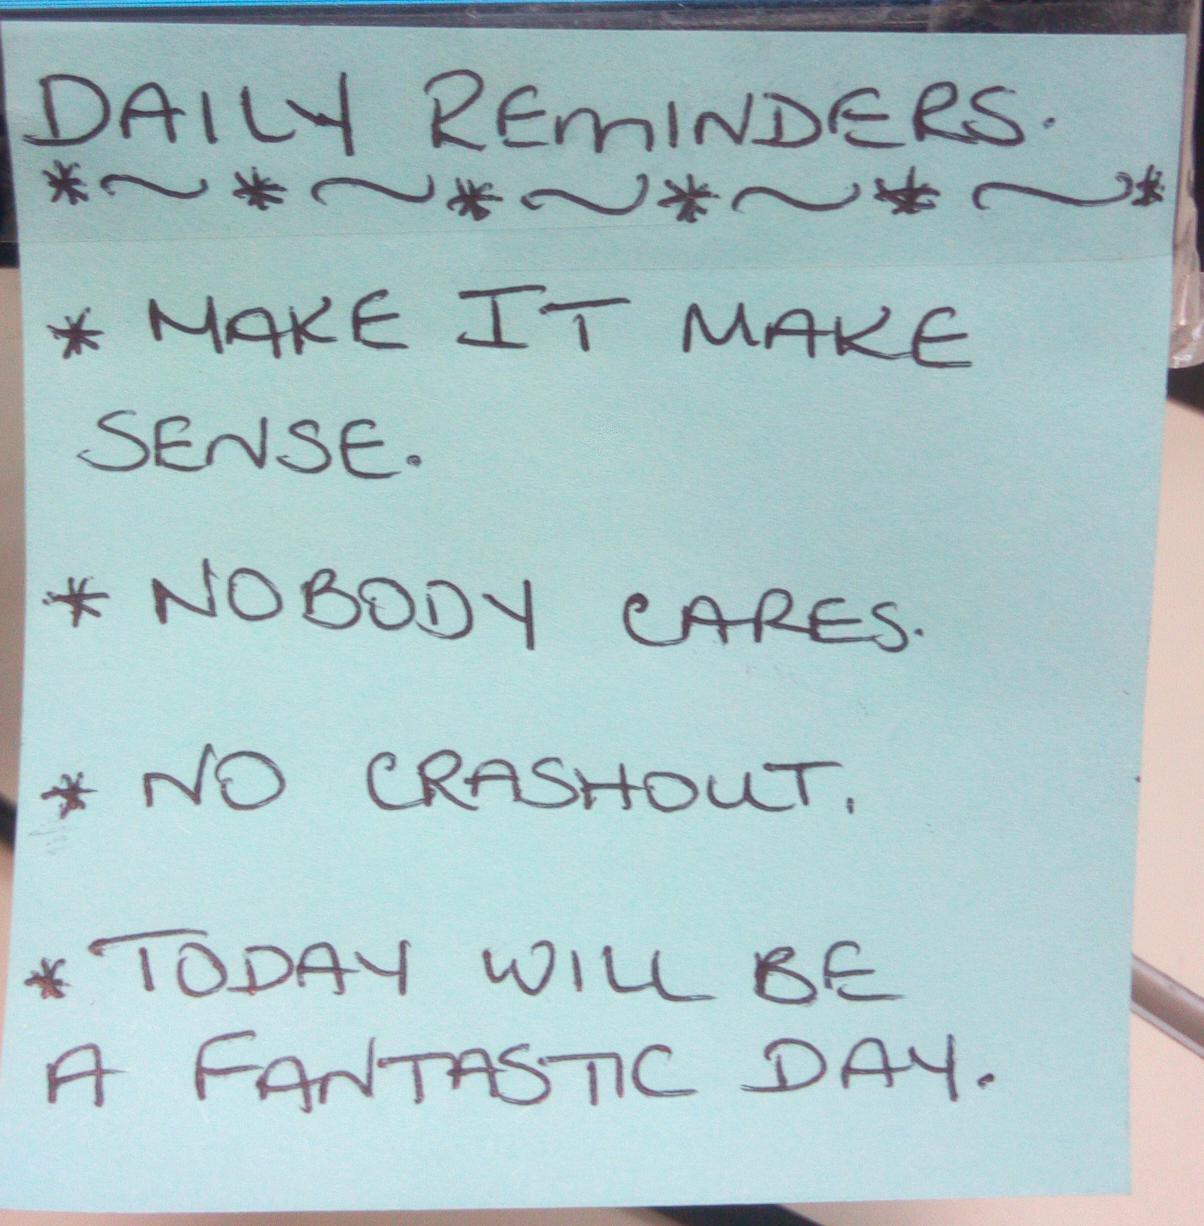 DAILY REMINDERS.
*~*~*~*~*~*
* MAKE IT MAKE
SENSE.
* NOBODY CARES.
* NO CRASHOUT.
* TODAY WILL BE
A FANTASTIC DAY.